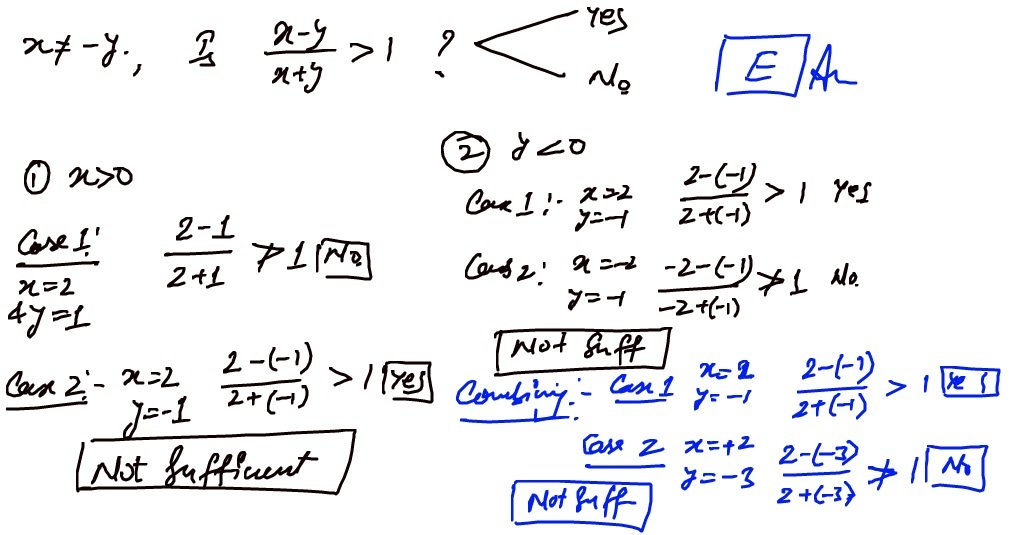 x ≠ -y., Is (x-y)/(x+y) > 1 ?
Yes
No
E Ans
① x>0
Case 1:
x=2
& y=1
(2-1)/(2+1) ≯ 1 No
Case 2:- x=2
y=-1
(2-(-1))/(2+(-1)) > 1 Yes
Not Sufficient
② y<0
Case 1:- x=2
y=-1
(2-(-1))/(2+(-1)) > 1 Yes
Case 2: x=-2
y=-1
(-2-(-1))/(-2+(-1)) ≯ 1 No.
Not Suff
Combining:- Case 1 x=2
y=-1
(2-(-1))/(2+(-1)) > 1 Yes
Case 2 x=+2
y=-3
(2-(-3))/(2+(-3)) ≯ 1 No
Not Suff